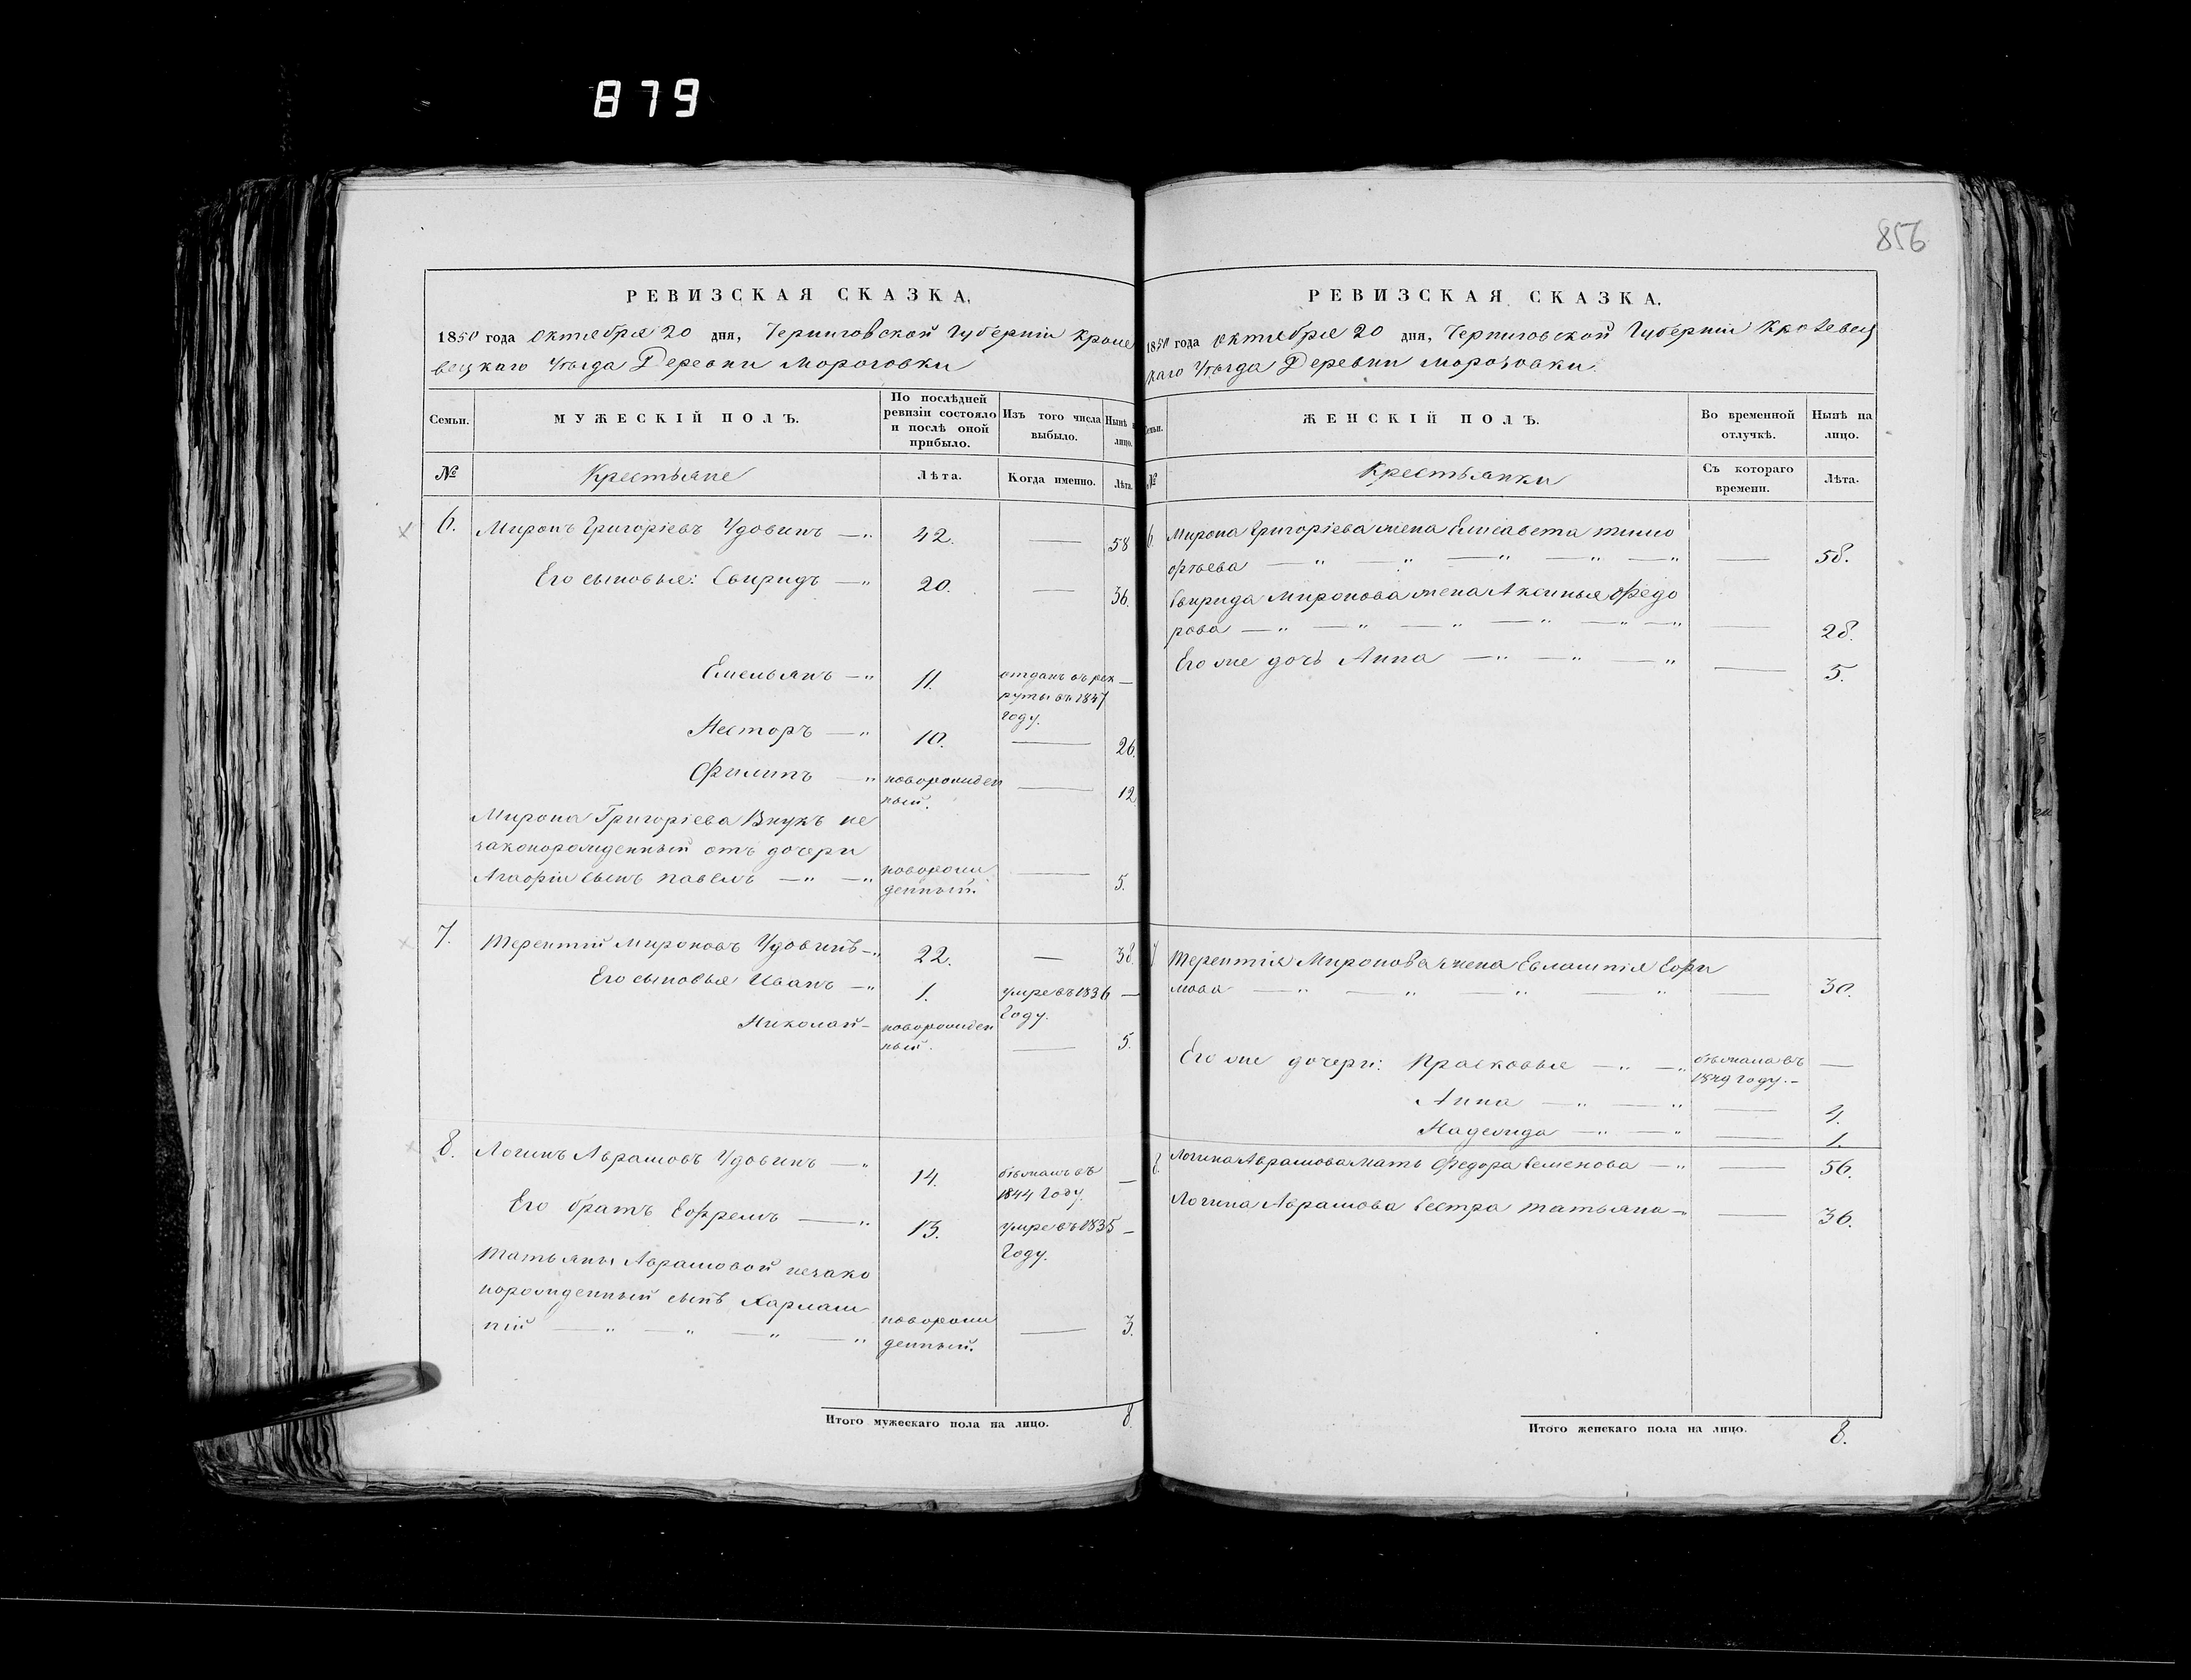 879
856
РЕВИЗСКАЯ СКАЗКА.
1850 года октября 20 дня, Черниговской Губерніи Кроле
вецкаго Уѣзда Деревни Морозовки
Семьи.
МУЖЕСКІЙ ПОЛЪ.
По послѣдней ревизіи состояло и послѣ оной прибыло.
Изъ того числа выбыло.
Нынѣ
лицо.
№
Крестьяне
Лѣта.
Когда именно.
Лѣта.
6. Миронъ Григоріевъ Удовинъ — 42. — 58
Его сыновья: Свиридъ — 20. — 36.
Емельянъ — 11. отданъ въ рек —
руты въ 1847
году.
Несторъ — 10. — 26
Филипъ — новорожден — 12
ный.
Мирона Григоріева Внукъ не
законорожденный отъ дочери
Агафіи сынъ Павелъ — новорож — 5.
денный.
7. Терентій Мироновъ Удовинъ — 22. — 38.
Его сыновья Иванъ — 1. умре въ 1836 —
году.
Николай — новорожден — 5.
ный.
8. Логинъ Аврамовъ Удовинъ — 14. бѣжалъ въ —
1844 году.
Его братъ Ефремъ — 13. умре въ 1835 —
году.
Татьяны Аврамовой незако
норожденный сынъ Харлам
пій — новорож — 3.
денный.
Итого мужескаго пола на лицо. 8.
РЕВИЗСКАЯ СКАЗКА.
1850 года октября 20 дня, Черниговской Губерніи Кролевец
каго Уѣзда Деревни Морозовки.
Семьи.
ЖЕНСКІЙ ПОЛЪ.
Во временной отлучкѣ.
Нынѣ на лицо.
№
Крестьянки
Съ котораго времени.
Лѣта.
6. Мирона Григоріева жена Елисавета Тимо
фѣева — 58.
Свирида Миронова жена Аксинья Федо
рова — 28.
Его же дочь Анна — 5.
7 Терентія Миронова жена Евлампія Ефи
мова — 30.
Его же дочери: Прасковья — бѣжала въ —
1849 году. —
Анна — 4.
Надежда — 1.
8. Логина Аврамова мать Федора Семенова — 56.
Логина Аврамова сестра Татьяна — 36.
Итого женскаго пола на лицо. 8.